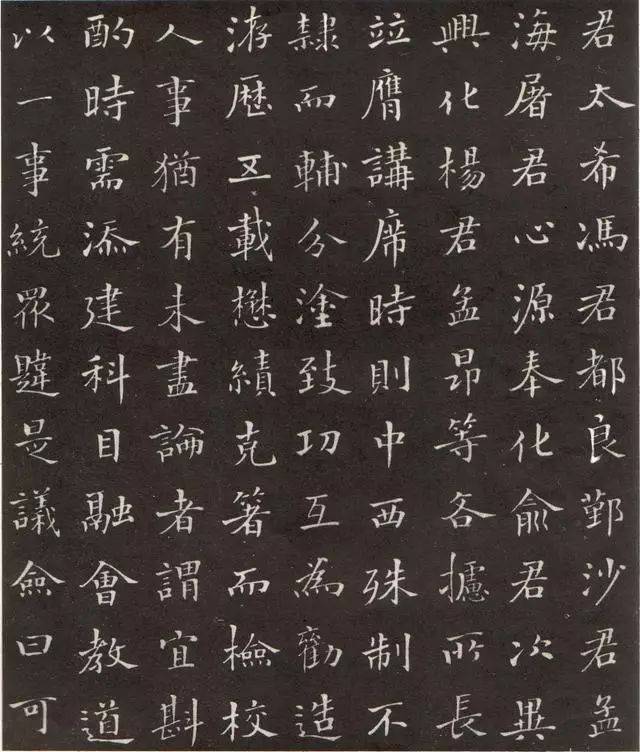 君太希馮君都良鄞沙君孟
海屠君心源奉化俞君次異
興化楊君孟昂等各攄所長
竝膺講席時則中西殊制不
隸而輔分塗致功互為勸造
洊歷五載懋績克箸而檢校
人事猶有未盡論者謂宜斟
酌時需添建科目融會教道
以一事統眾韙是議僉曰可